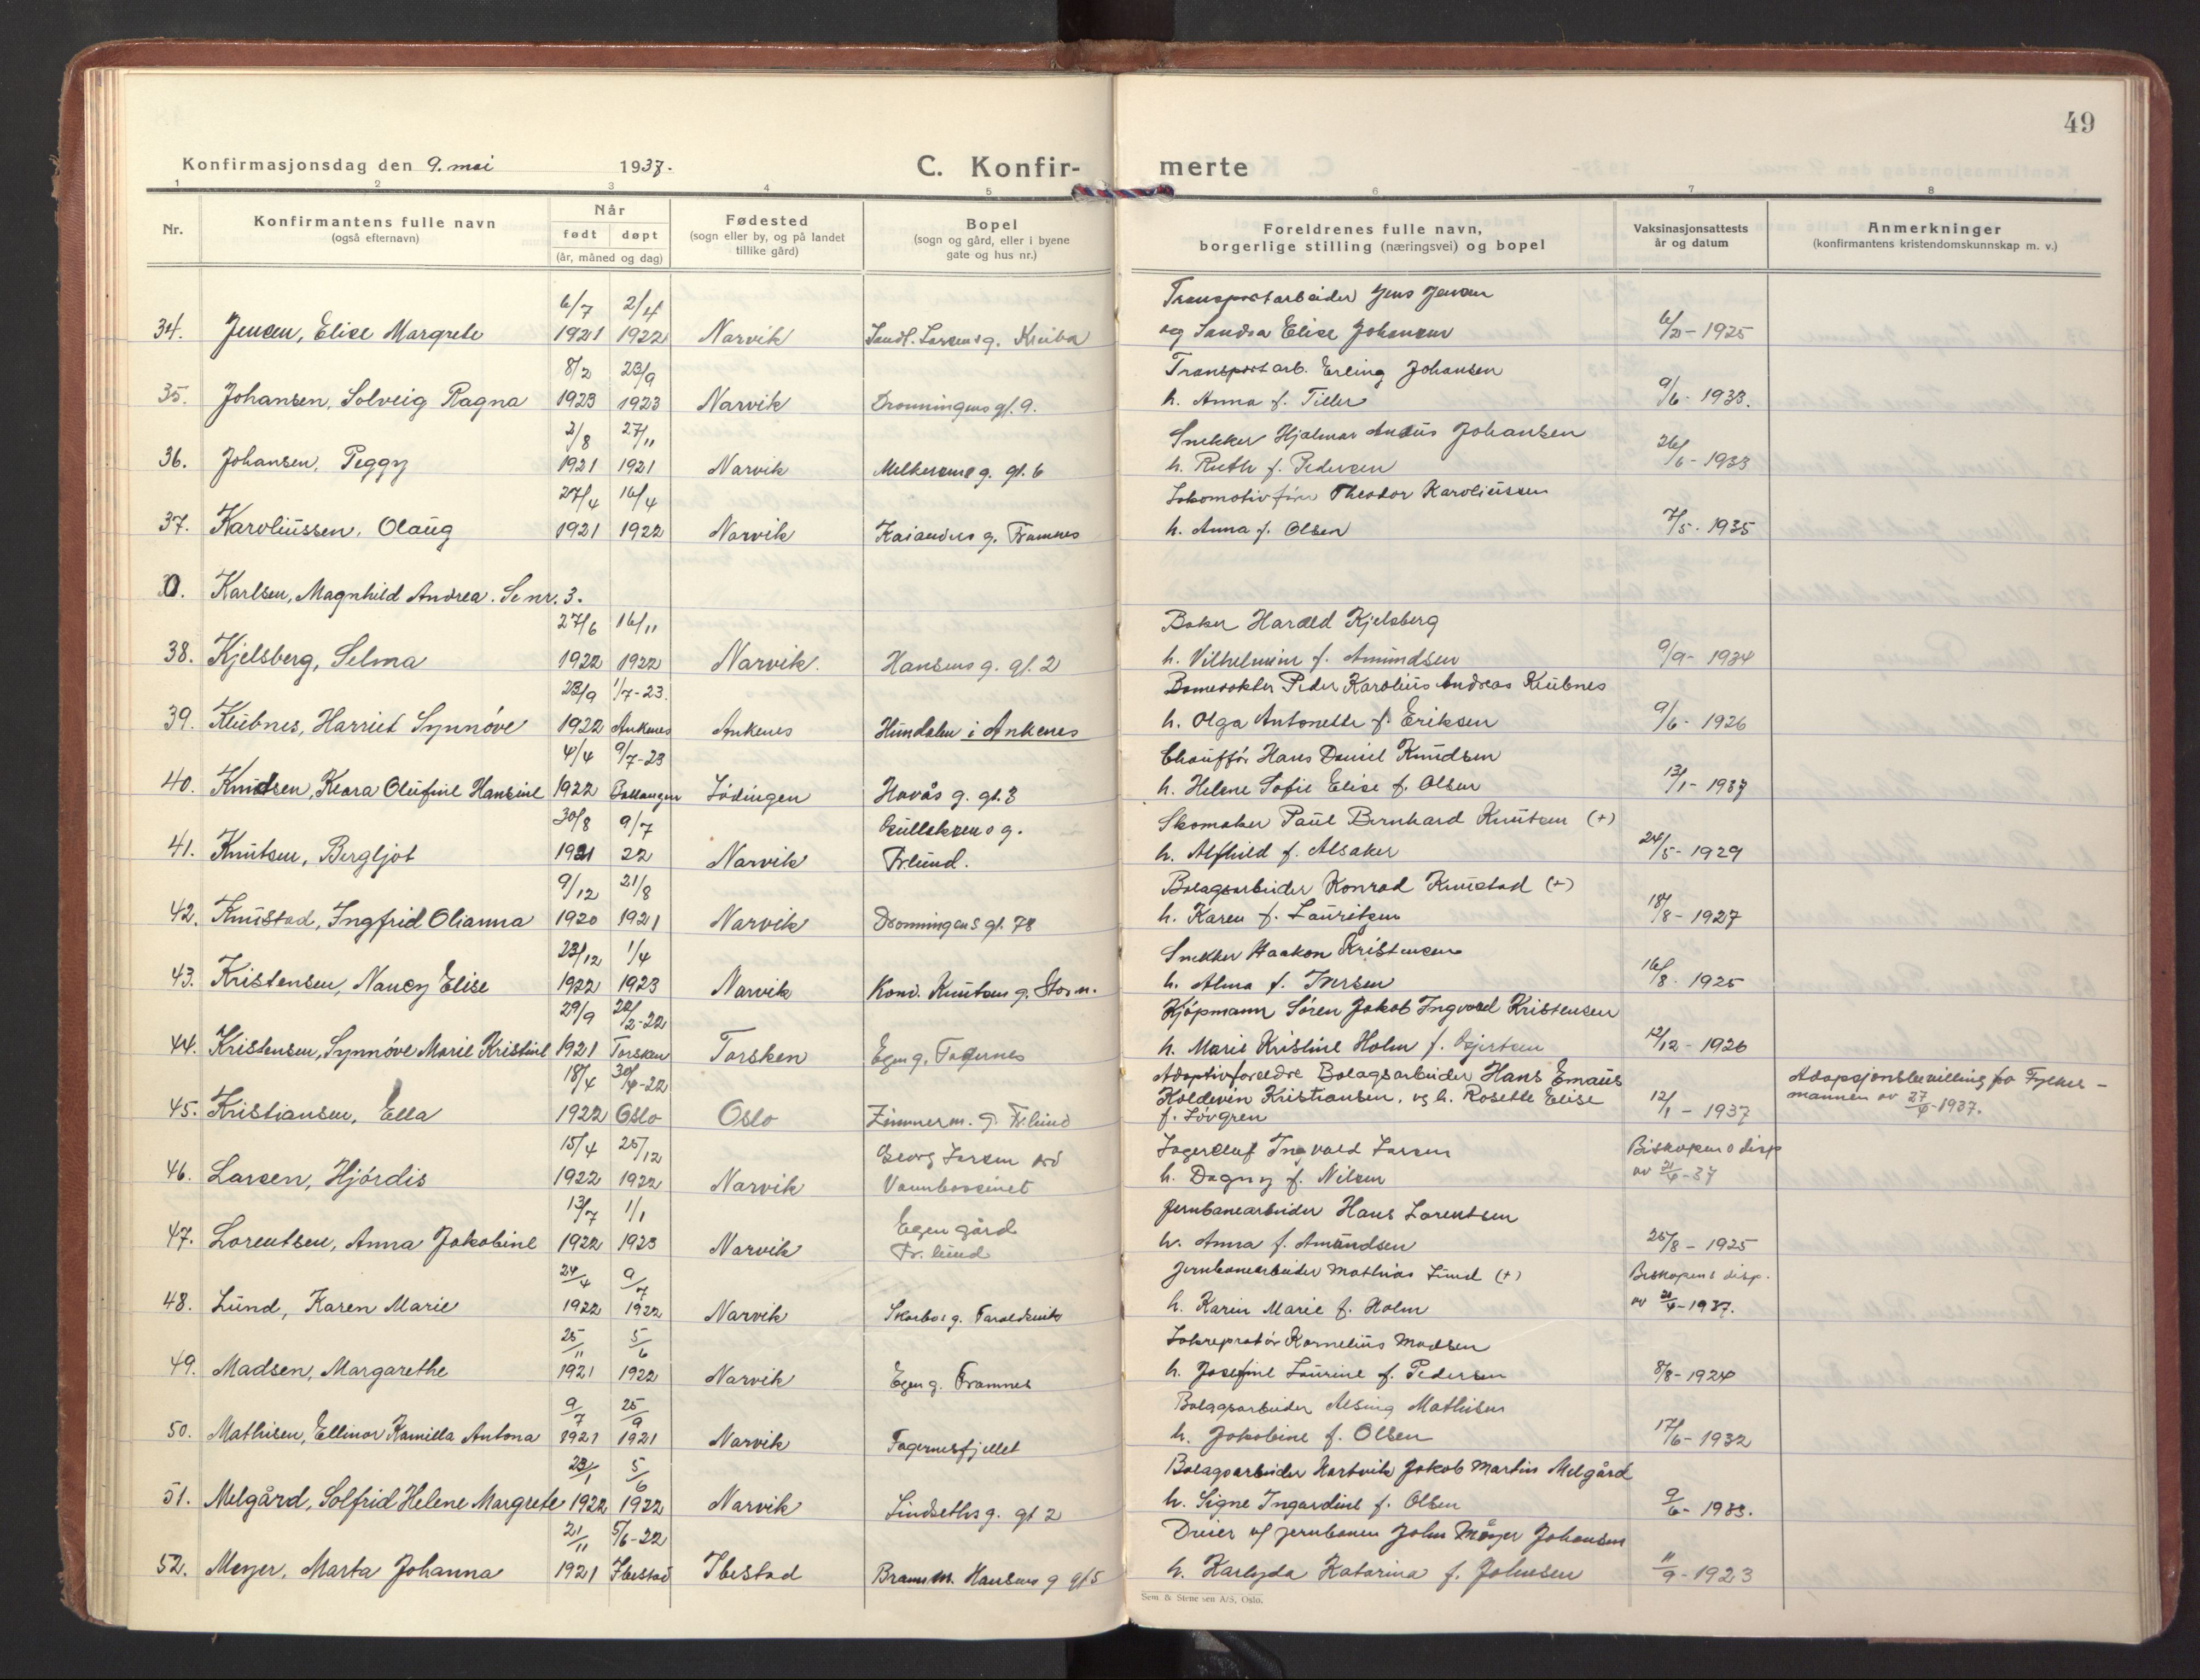 49
Konfirmasjonsdag den 9. mai 1937.
C. Konfirmerte
1 2 3 4 5 6 7 8
Nr.
Konfirmantens fulle navn
(også efternavn)
Når
født døpt
(år, måned og dag)
Fødested
(sogn eller by, og på landet
tillike gård)
Bopel
(sogn og gård, eller i byene
gate og hus nr.)
Foreldrenes fulle navn,
borgerlige stilling (næringsvei) og bopel
Vaksinasjonsattests
år og datum
Anmerkninger
(konfirmantens kristendomskunnskap m. v.)
6/7 2/4 Transportarbeider Jens Jensen
34. Jensen, Elise Margrete 1921 1922 Narvik og Sandra Elise Johansen 1925
8/2 23/9 Transportarb. Erling Johansen
35. Johansen, Solveig Ragna 1923 1923 Narvik Dronningens gt. 9. h. Anna f. Tiller 9/6- 1933.
2/8 27/11 Snekker Hjalmar Johansen
36. Johansen, Peggy 1921 1921 Narvik g. gt. 6 h. Ruth f. Pedersen 26/6- 1933
27/4 16/4 Lokomotivfører Theodor Karoliussen
37. Karoliussen, Olaug 1921 1922 Narvik g. Framnes h. Anna f. Olsen 7/5. 1935
0. Karlsen, Magnhild Andrea. Se nr. 3.
27/6 16/11 Baker Harald Kjelsberg
38. Kjelsberg, Selma 1922 1922 Narvik. Hansens g. gt. 2 h. Vilhelmine f. Amundsen 9/9- 1934
23/9 1/7-23. Banevokter Peder Karolius Andreas Klubnes
39. Klubnes, Harriet Synnøve 1922 Ankenes Ankenes Hundalen i Ankenes h. Olga Antonette f. Eriksen 9/6- 1926
4/4 9/7-23 Chauffør Hans Daniel Knudsen
40. Knudsen, Klara Olufine Hansine 1922 Ballangen Lødingen Havås g. gt. 3 h. Helene Sofie Elise f. Olsen 13/1- 1937
30/8 9/7 g. Skomaker Paul Bernhard Knutsen (+)
41. Knutsen, Bergljot 1921 22 Narvik Fr.lund. h. Alfhild f. Alsaker 24/5- 1929
9/12 21/8 Bolagsarbeider Konrad Knustad (+)
42. Knustad, Ingfrid Olianna 1920 1921 Narvik Dronningens gt. 78 h. Karen f. Lauritsen 18/8- 1927
23/12 1/4 Snekker Haakon Kristensen
43. Kristensen, Nancy Elise 1922 1923 Narvik Knutsens g. h. Alma f. Iversen 16/8. 1925
29/9 2-22 Kjøpmann Søren Jakob Ingvard Kristensen
44. Kristensen, Synnøve Marie Kristine 1921 Torsken Torsken Egen g. Fagernes h. Marie Kristine Holm f. Gjertsen 12/12- 1926
18/4 30/4-22 Adoptivforeldre Bolagsarbeider Hans Emaus Adopsjonsbevilling fra Fylkes-
45. Kristiansen, Ella 1922 Oslo Oslo Zimmerm. g. Fr.lund Koldevin Kristiansen, og h. Rosette Elise f. Løvgren 12/1- 1937 mannen av 27/4-1937.
15/4 25/12 Georg Larsen ved Lagersjef Ingvald Larsen Biskopens disp
46. Larsen, Hjørdis 1922 1922 Narvik Vannbassenget h. Dagny f. Nilsen av 21/4-37
13/7 1/1 Egen gård Jernbanearbeider Hans Lorentsen
47. Lorentsen, Anna Jakobine 1922 1923 Narvik Fr.lund h. Anna f. Amundsen 25/8- 1925
24/4 9/7 Jernbanearbeider Mathias Lund (+) Biskopens disp.
48. Lund, Karen Marie 1922 1922 Narvik g. Taraldsvik h. Karin Marie f. Holm av 21/4-1937.
25/11 5/6 Lokreparatør Kornelius Madsen
49. Madsen, Margarethe 1921 1922 Narvik Egen g. Framnes h. Josefine Laurine f. Pedersen 8/8-1924
9/7 25/9 Bolagsarbeider Alsing Mathisen
50. Mathisen, Ellinor Kamilla Antona 1921 1921 Narvik Fagernesfjellet h. Jakobine f. Olsen 17/6-1932
23/1 5/6 Bolagsarbeider Hartvik Jakob Martin Melgård
51. Melgård, Solfrid Helene Margrete 1922 1922 Narvik Lindseths g. gt 2 h. Signe Ingardine f. Olsen 9/6- 1933.
21/11 5/6-22 Dreier v/ jernbanen John Meyer Johansen
52. Meyer, Marta Johanna 1921 Ibestad Ibestad Hansens g gt 5 h. Karlyda Katarina f. Johnsen 11/9-1923
Sem & Stenersen A/S, Oslo.